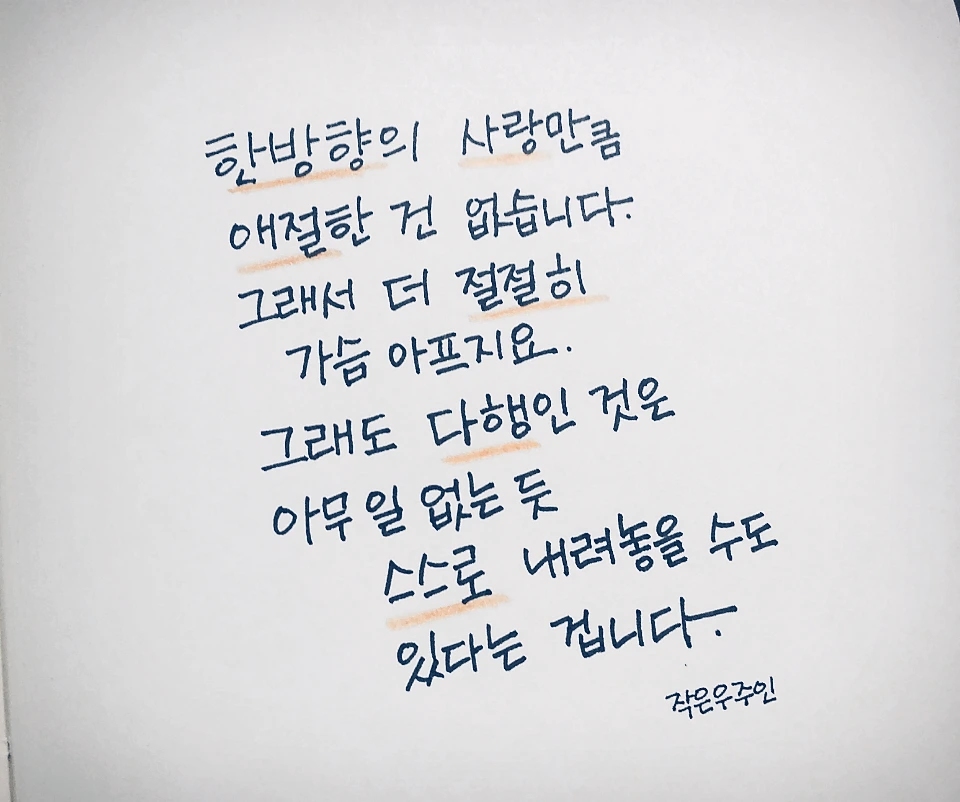 한방향의 사랑만큼
애절한 건 없습니다.
그래서 더 절절히
가슴 아프지요.
그래도 다행인 것은
아무일 없는 듯
스스로 내려놓을 수도
있다는 겁니다.
작은우주인